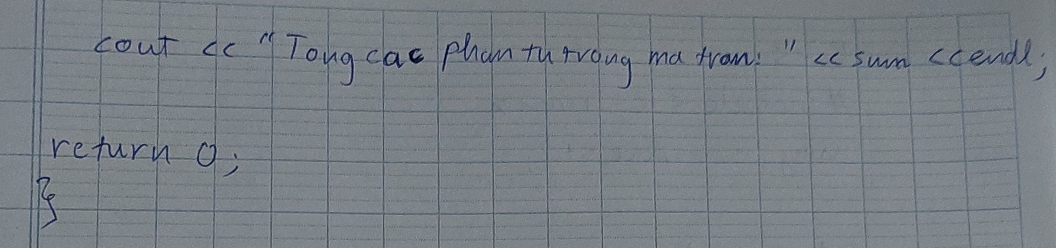 cout << "Tong cac phan tu trong ma tran: " << sum <<endl;
return 0;
}